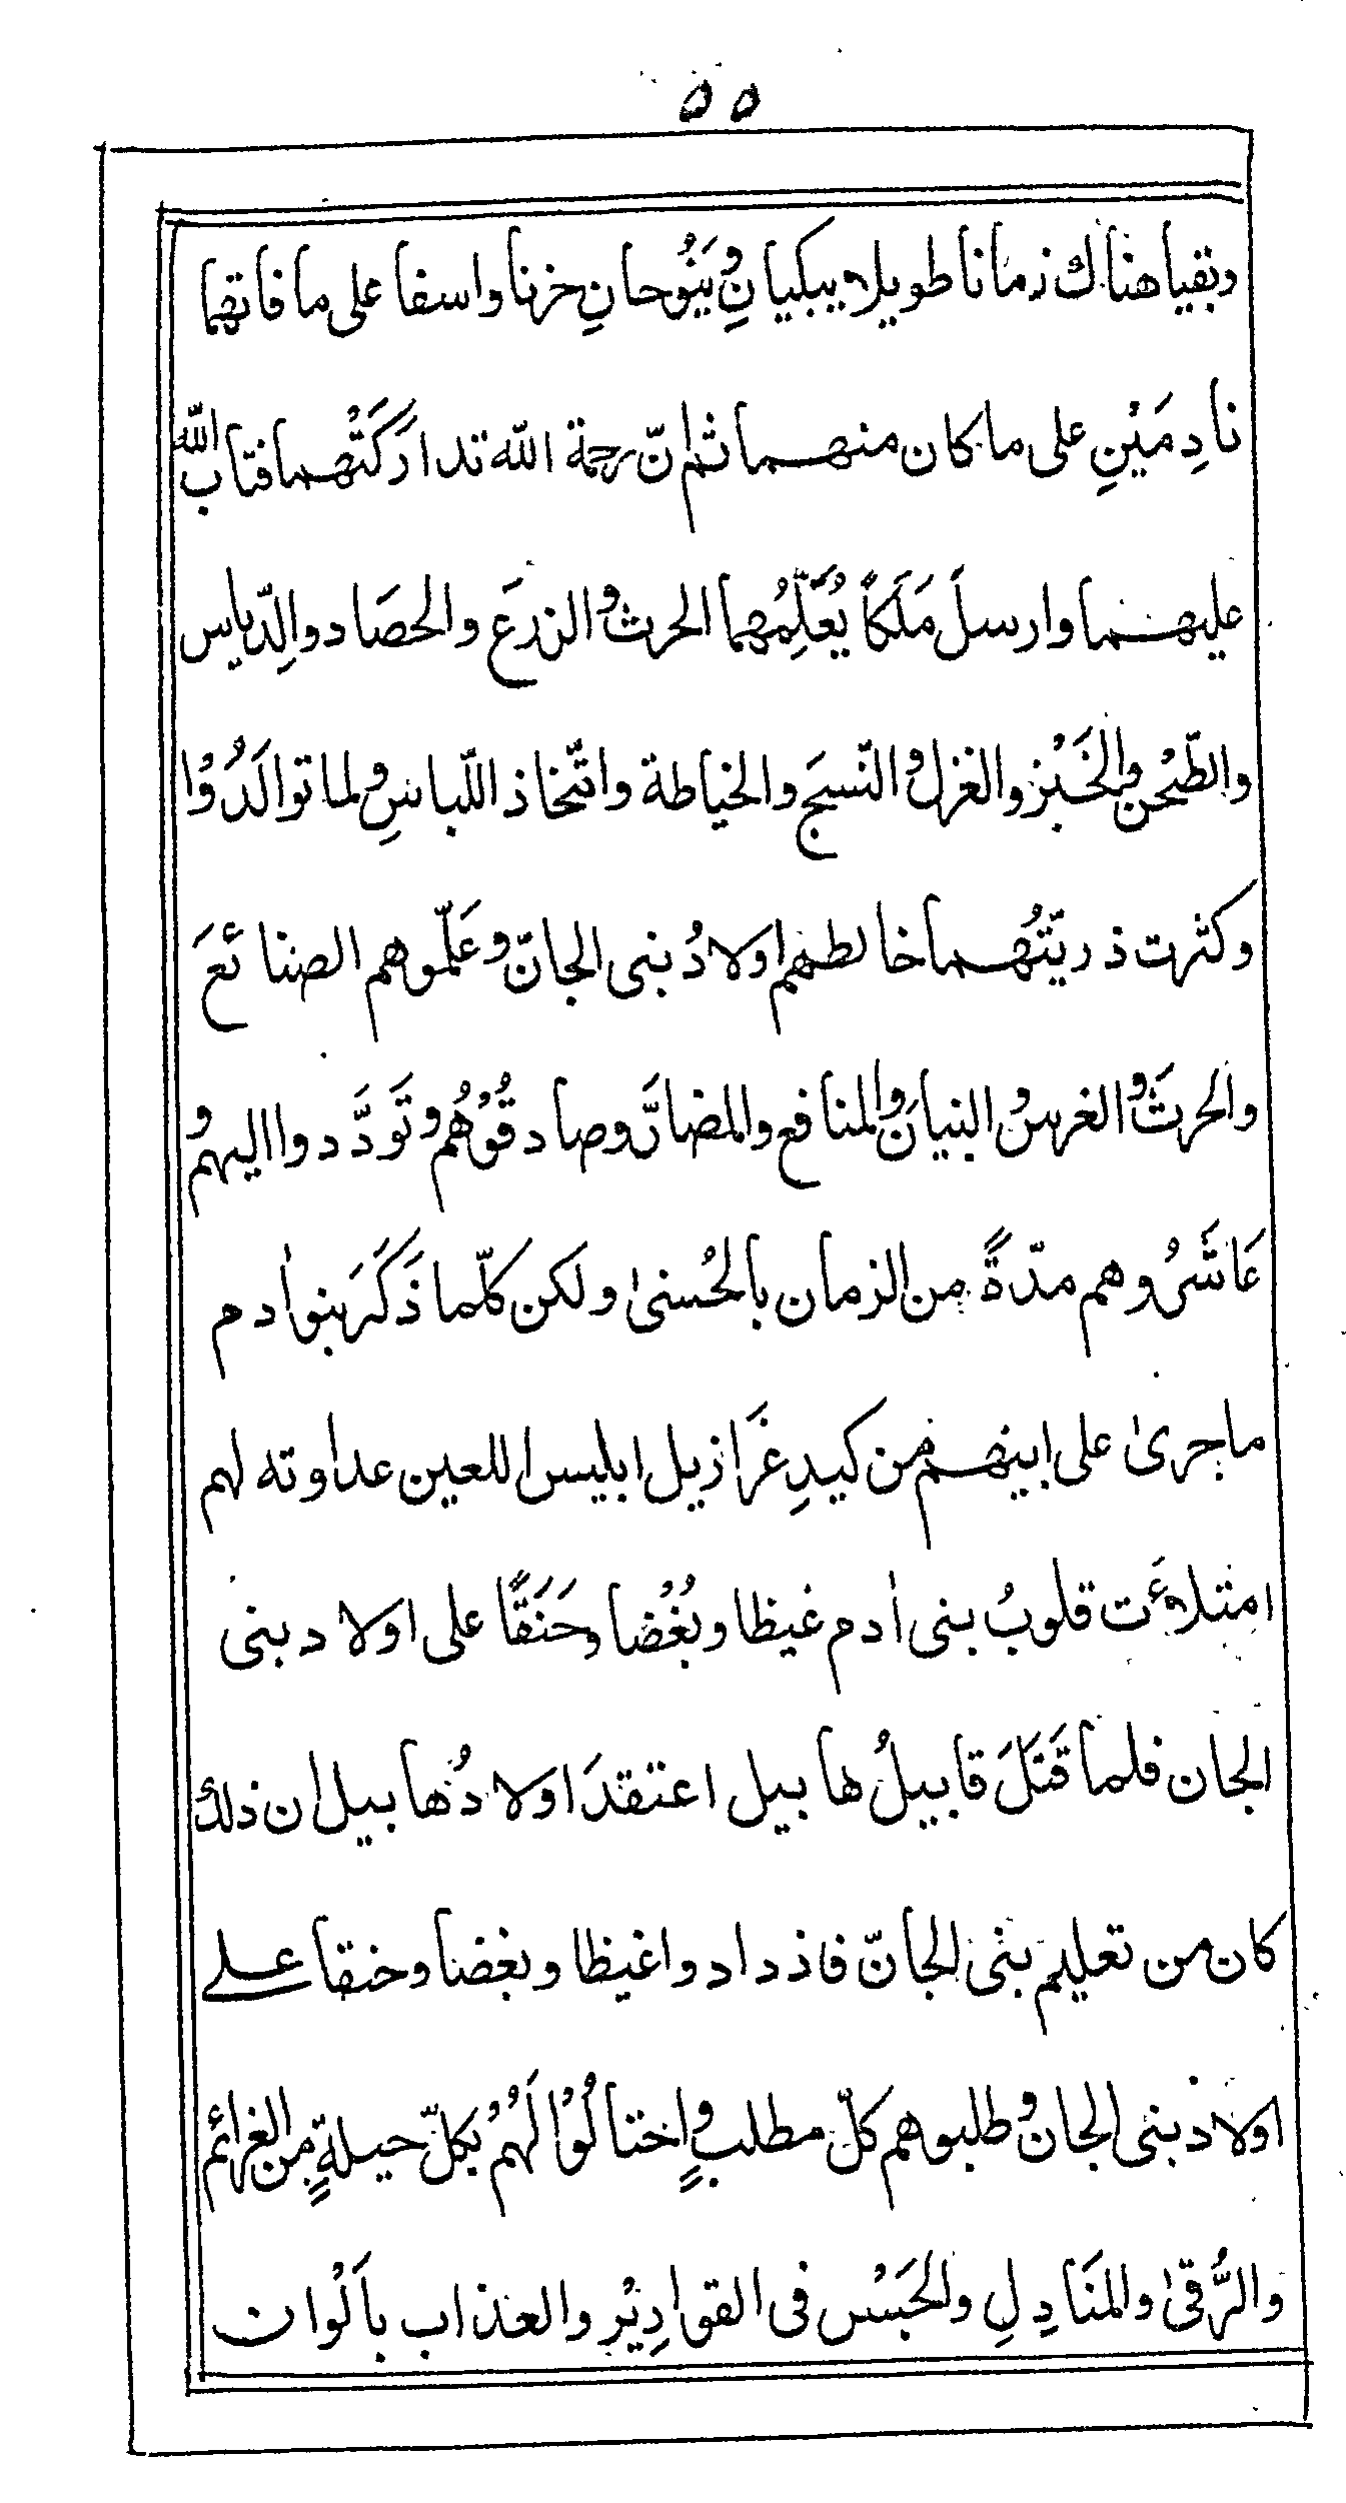 ۵۵
وبقيا هناك زمانا طويلا يبكيانِ وَيَنُوحانِ حزنا واسفا على ما فاتهما
نادِمَيْنِ على ما كان منهما ثم انّ رحمة الله تداركَتْهما فتاب الله
عليهما وارسلَ مَلَكاً يُعَلِّمُهما الحرث والزرعَ والحصَاد والدِّياس
والطّحْن والخَبْز والغزل والنّسجَ والخياطة واتّخاذ اللّباسِ ولما توالَدُوْا
وكثرت ذريتُهما خالطهم اولادُ بنى الجانّ وعَلّموهم الصنائعَ
والحرثَ والغرس والبنيانَ والمنافع والمضارَّ وصادقُوْهُم وتَوَدَّدوا اليهم و
عَاشَرُوهم مدّةً من الزمان بالحُسنىٰ ولكن كلّما ذَكَرَ بنو اٰدم
ما جرىٰ على ابيهم من كيدِ عَزَازيل ابليس اللعين عداوته لهم
امتلاءَت قلوبُ بنى اٰدم غيظا وبُغْضا وحَنَقًا على اولاد بنى
الجان فلما قَتَلَ قابيلُ هابيل اعتقدَ اولادُ هابيل ان ذلك
كان من تعليم بنى الجانّ فازدادوا غيظا وبغضا وحنقا على
اولاد بنى الجان وطلبوهم كلّ مطلبٍ واحتالُوْا لَهُمْ بكلّ حيلةٍ من العزائم
والرُّقىٰ والمنَادِلِ والحَبْس فى القوارِيْر والعذاب بالْوان